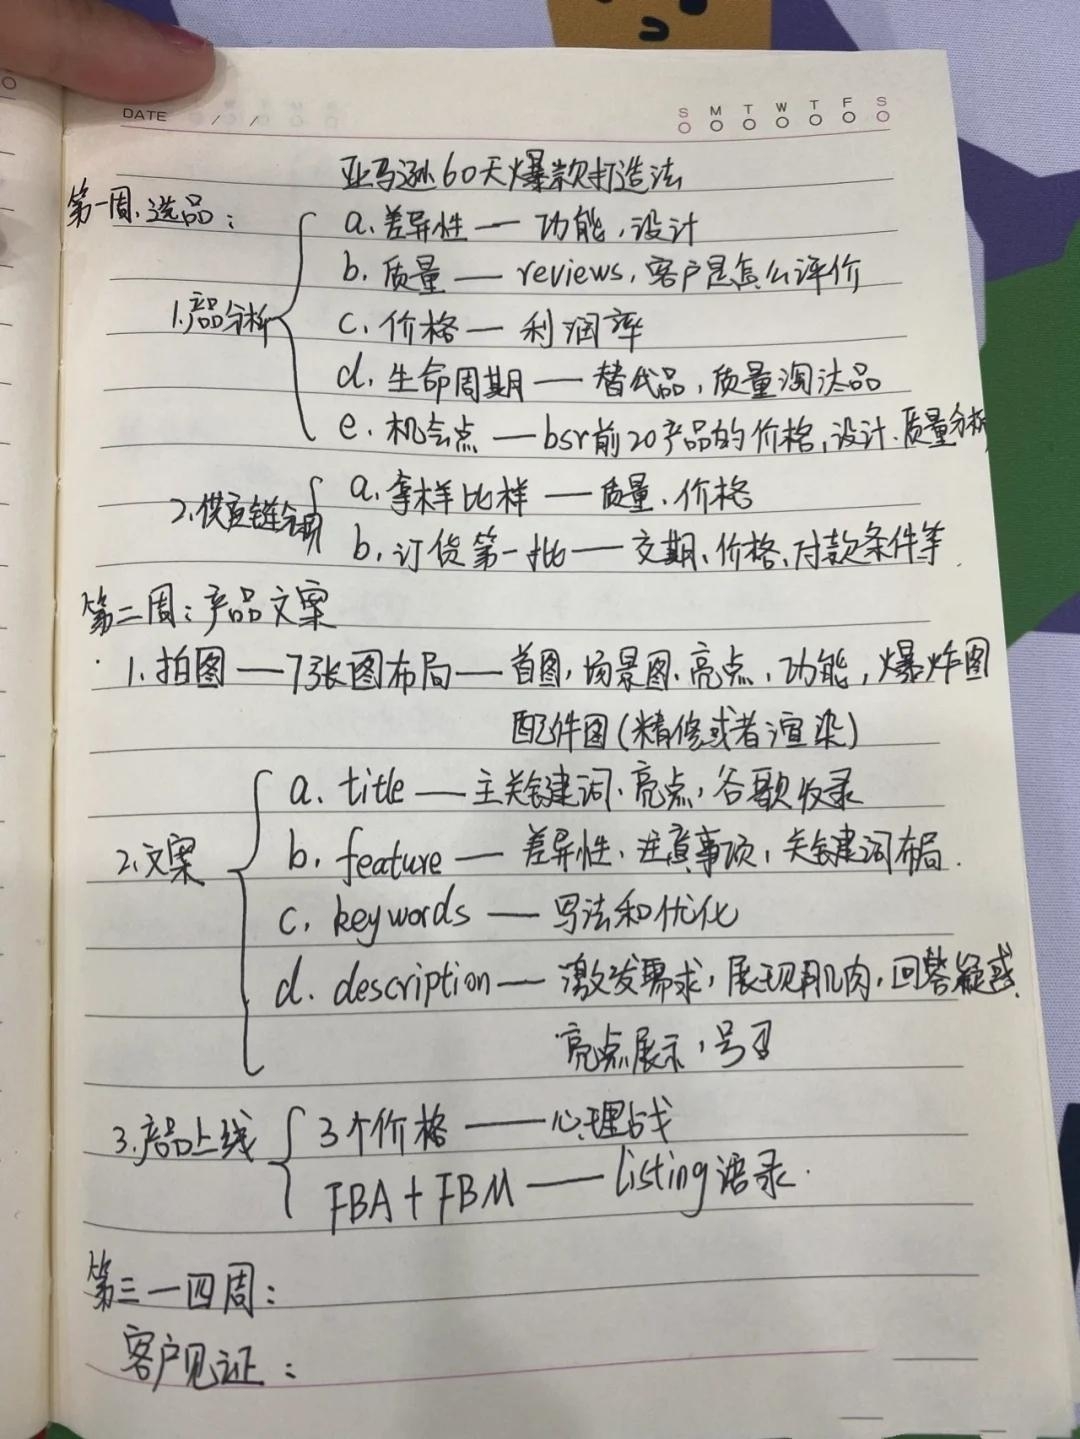 DATE / /
S M T W T F S
亚马逊60天爆款打造法
第一周:选品:
1.产品分析
a.差异性 — 功能、设计
b.质量 — reviews,客户是怎么评价
c.价格 — 利润率
d.生命周期 — 替代品,质量淘汰品
e.机会点 — bsr前20产品的价格、设计、质量分析
2.供应链
a.拿样比样 — 质量、价格
b.订货第一批 — 交期、价格、付款条件等.
第二周:产品文案
1.拍图 — 7张图布局 — 首图,场景图、亮点、功能,爆炸图
配件图(精修或者渲染)
2.文案
a. title — 主关键词、亮点,谷歌收录
b. feature — 差异性、注意事项,关键词布局.
c. keywords — 写法和优化
d. description — 激发需求,展现肌肉,回答疑惑.
亮点展示,号召
3.产品上线
3个价格 — 心理战
FBA + FBM — listing 语录.
第三一四周:
客户见证: